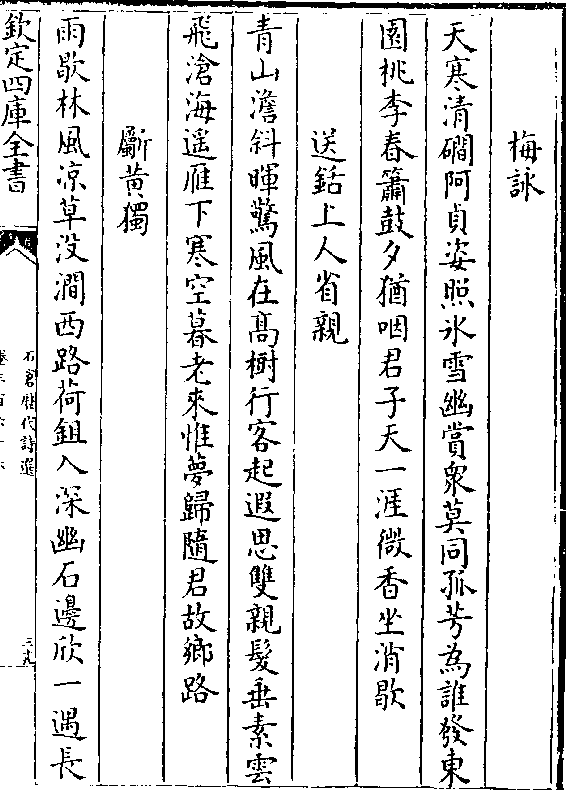 梅詠
天寒清磵阿貞姿照氷雪幽賞衆莫同孤芳為誰發東
園桃李春簫鼓夕猶咽君子天一涯微香坐消歇
送銛上人省親
青山澹斜暉驚風在髙樹行客起遐思雙親髮垂素雲
飛滄海遥雁下寒空暮老來惟夢歸隨君故鄉路
斸黄獨
雨歇林風凉草没澗西路荷鉏入深幽石邊欣一遇長
欽定四庫全書
石倉歴代詩選
三九